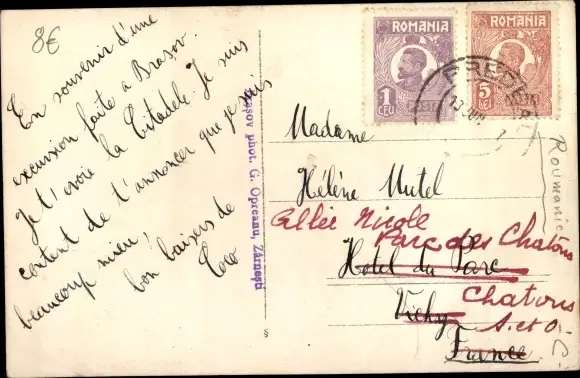 8€
En souvenir d'une
excursion faite à Brașov.
Je t'envoie la Citadelle. Je suis
content de t'annoncer que je suis
beaucoup mieux,
bon baisers de
Coco
Brașov phot. G. Opreanu, Zărnești
ROMANIA
1
LEU
ROMANIA
5
LEI
PREDEAL
Madame
Hélène Mutel
Allée Nicole
Parc des Chatons
Hotel du Parc
Vichy
Chatous
S. et O.
France
Roumanie